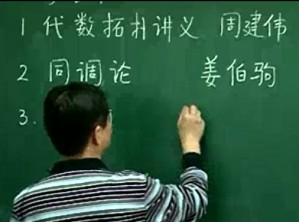 1 代数拓扑讲义 周建伟
2 同调论 姜伯驹
3.